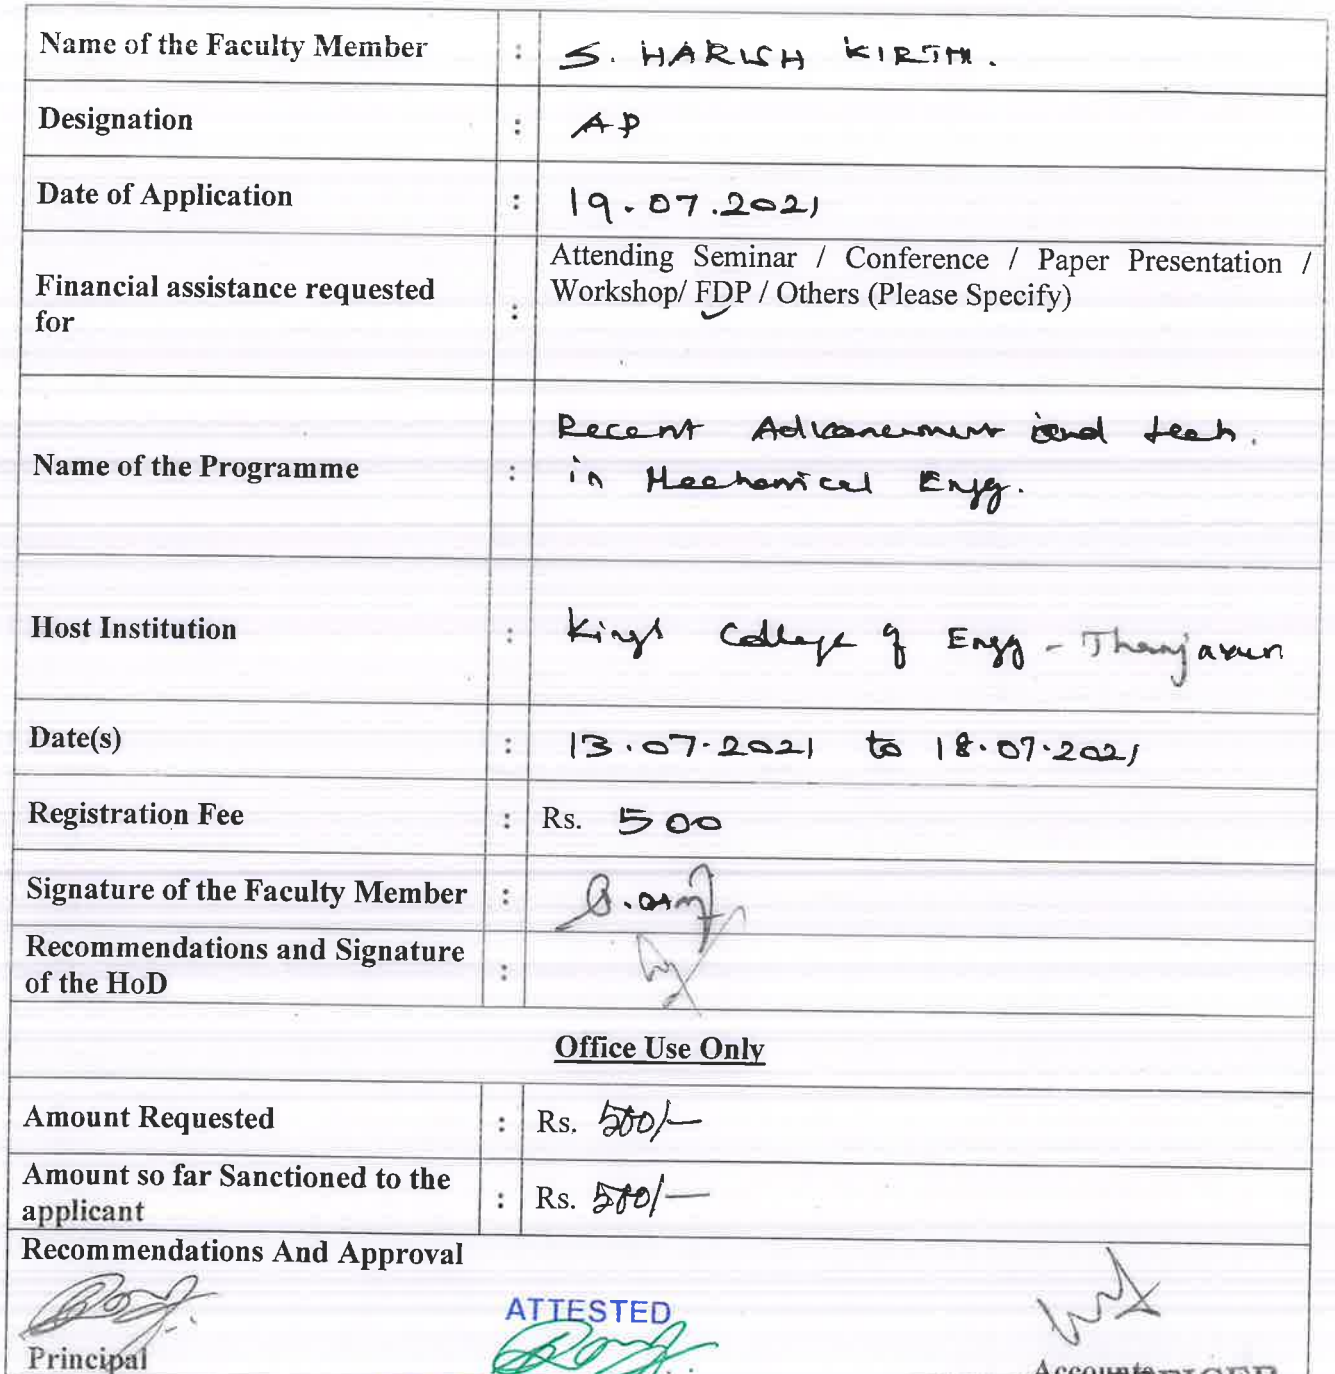 Name of the Faculty Member : S. HARISH KIRTHI.
Designation : AP
Date of Application : 19.07.2021
Financial assistance requested for : Attending Seminar / Conference / Paper Presentation /
Workshop/ FDP / Others (Please Specify)
Name of the Programme : Recent Advancement and tech.
in Mechanical Engg.
Host Institution : Kings College of Engg - Thanjavur
Date(s) : 13.07.2021 to 18.07.2021
Registration Fee : Rs. 500
Signature of the Faculty Member :
Recommendations and Signature
of the HoD :
Office Use Only
Amount Requested : Rs. 500/-
Amount so far Sanctioned to the
applicant : Rs. 500/-
Recommendations And Approval
ATTESTED
Principal
Accounts